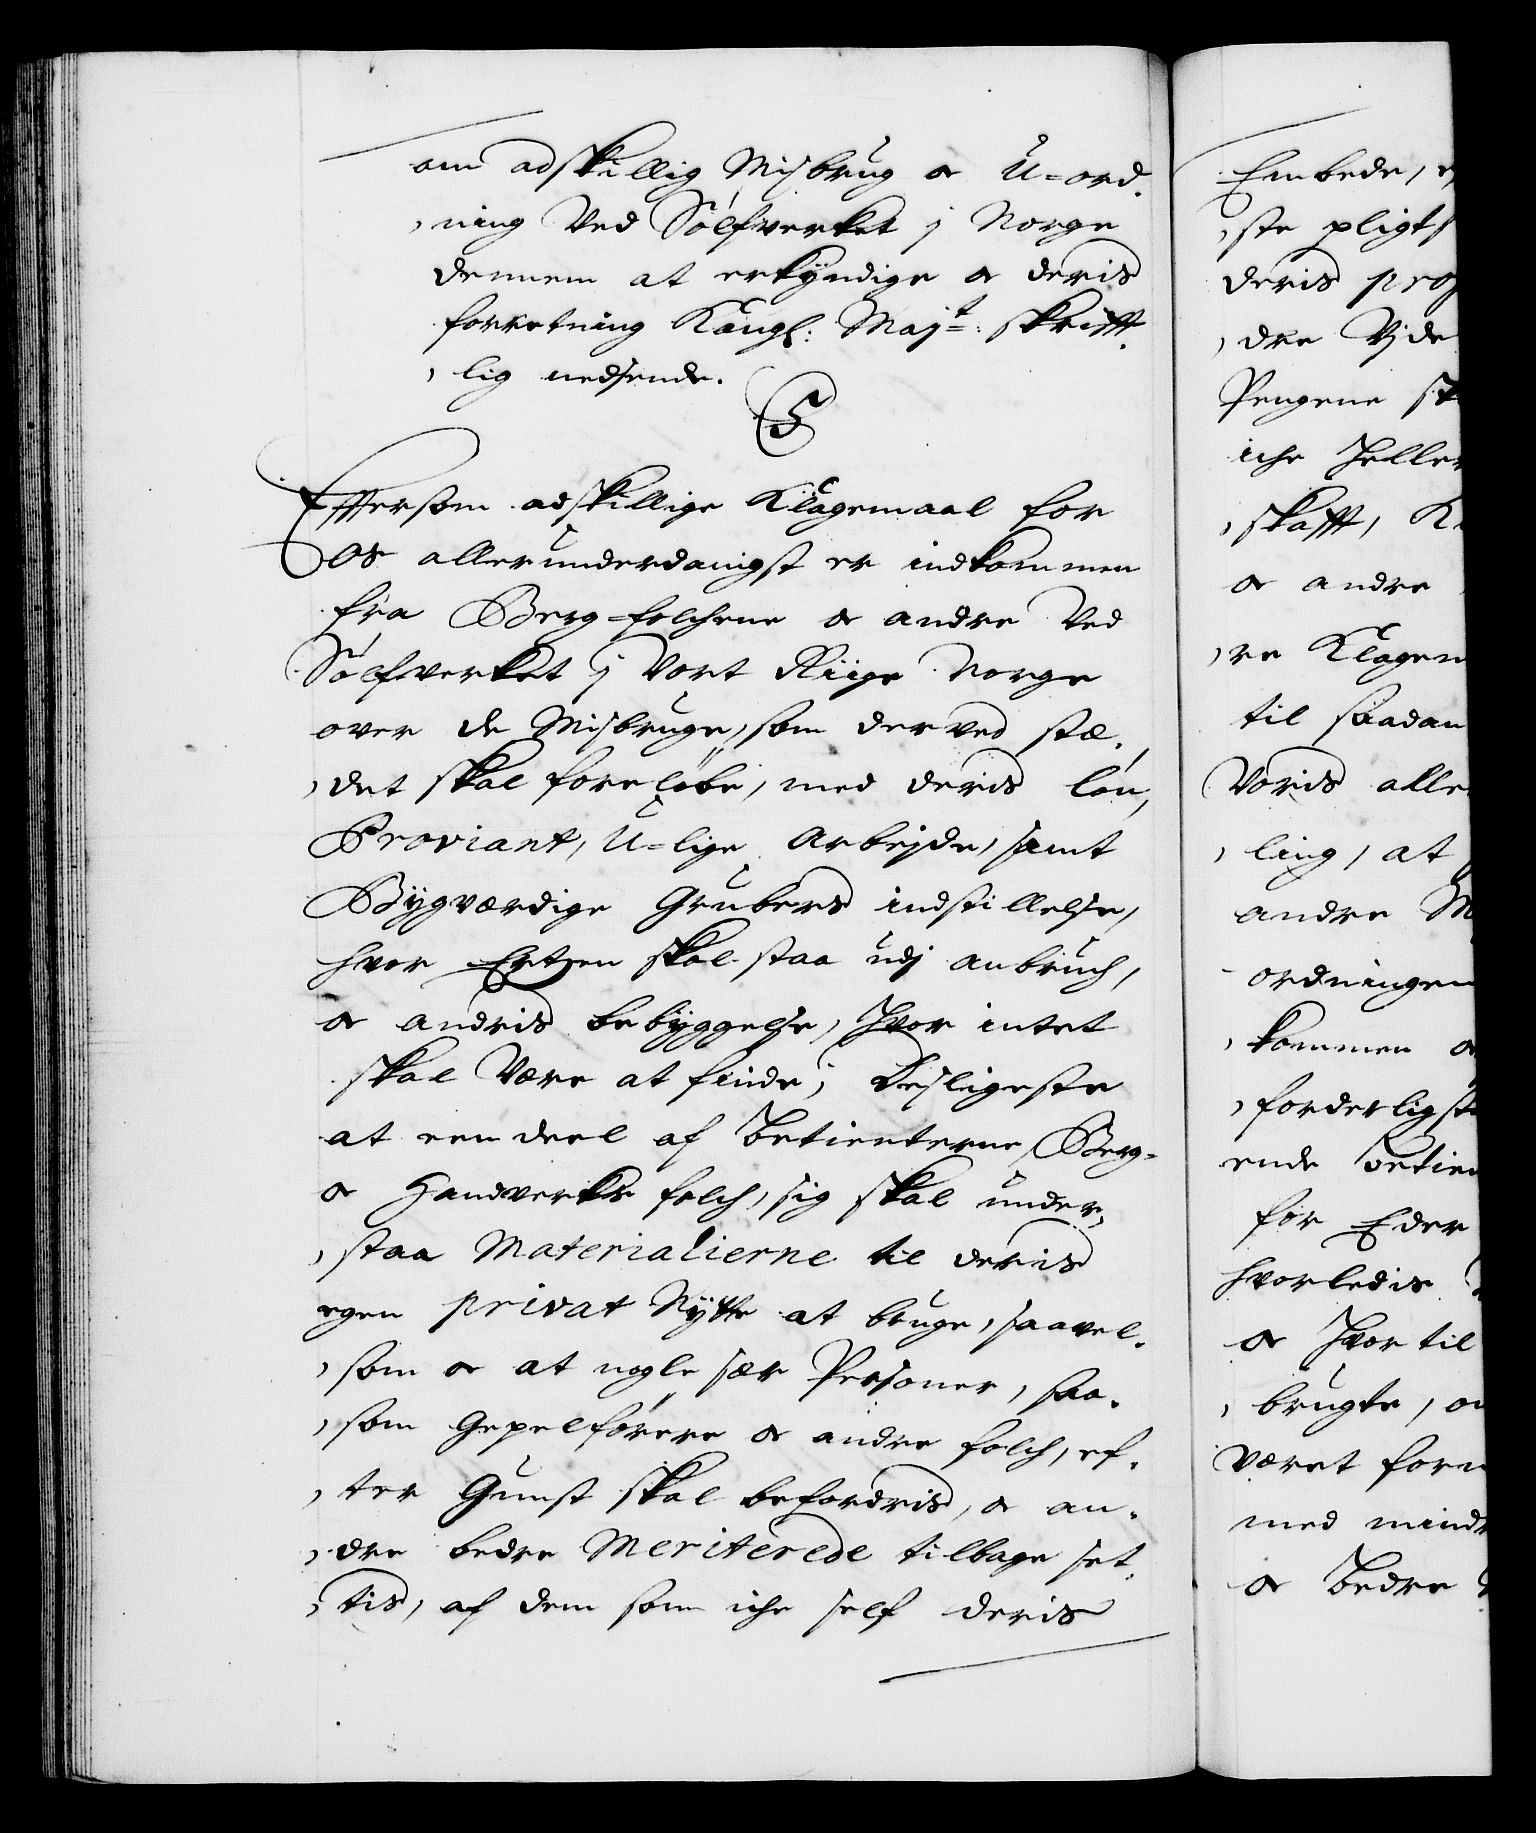 om adskillig Misbrug oc U=ord,
,ning ved Sølfverket j Norge
dennem at erkyndige oc deris
forretning Kongl: Majt: skrifft,
,lig nedsende.
Effersom adskillige Klagemaal for
Os allerunderdanigst er indkommen
fra Berg=folchene oc andre ved
Sølfverket j Vort Riige Norge
over de Misbruge, som der ved stæ,
,det skal foreløbe, med deris løn,
Proviant, U=lige Arbejde, samt
Bygværdige Grubers indstillelse,
hvor Ertzen skal staa udj anbruch,
oc andris bebyggelse, hvor intet
skal være at finde; Desligeste
at een deel af Betienterne, Berg=
oc Handverks folch, sig skal under,
,staa Materialierne til deris
egen privat Nytte at bruge, saavel,
,som oc at nogle sær Personer, saa,
,som Gepelförere oc andre folch, ef,
,ter Gunst skal befordris, oc an,
,dre bedre Meriterede tilbage set,
,tis, af dem som iche self deris
Embede,
,ste pligts
deris
,dre Vide
Pengene
iche heller
,skafft,
oc andre
,re Klagem
til saadan
Voris alle
,ling, at
andre
ordningen
,kommen oc
,forderligste
ende betien
for Eder
hvorledis
oc hvor til
,brugte,
været
med mindre
oc bedre